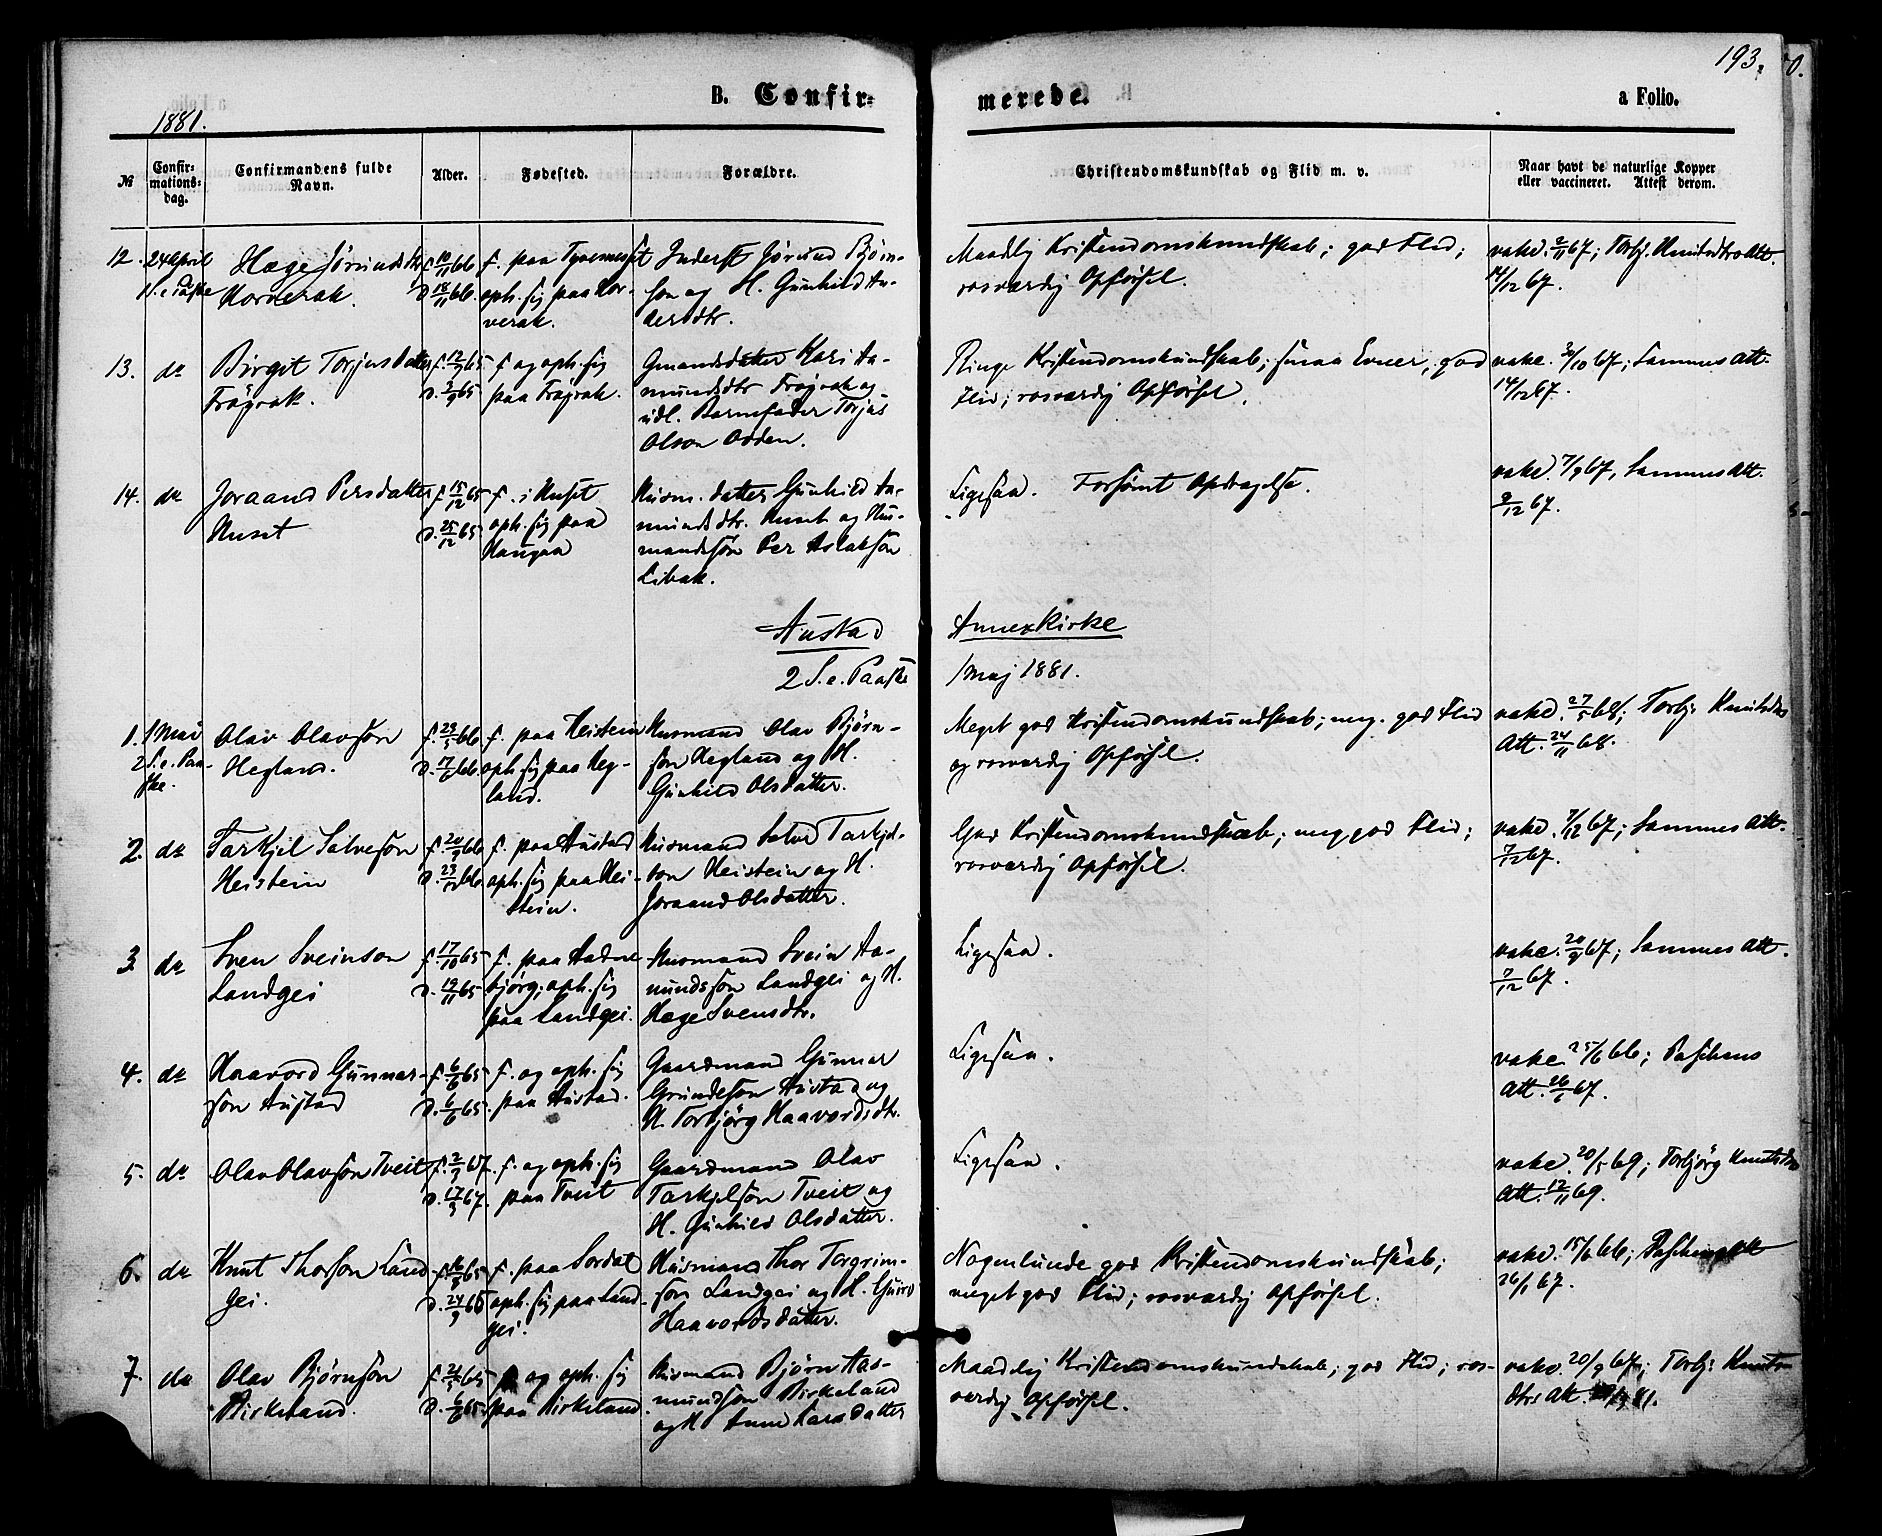 193.
B. Confir-
merede.
a Folio.
1881.
№
Confir-
mations-
dag.
Confirmandens fulde
Navn.
Alder.
Fødested.
Forældre.
Christendomskundskab og Flid m. v.
Naar havt de naturlige Kopper
eller vaccineret. Attest derom.
12. 24 April
1 S. e. Paaske
Hæge Jörunds
f. 10/11 66
D. 18/11 66.
f. paa
oph. sig paa
verak.
Inderst Jörund Björn-
son og H. Gunhild An-
dersdtr.
Maadlig Kristendomskundskab; god Flid;
rosværdig Opförsel.
vakc. 2/11 67; Torbj. Knutsdtrs Att.
14/12 67.
13. do
Birgit Torjusdatter
Frögvak.
f. 12/7 65
D. 3/9 65
f. og oph. sig
paa Frögvak.
Gmandsdatter Kari Aa-
mundsdtr Frögvak og
udl. Barnefader Torjus
Olson Odden.
Ringe Kristendomskundskab; smaa Evner, god
Flid; rosværdig Opförsel.
vakc. 3/10 67; Sammes Att.
14/12 67.
14. do
Joraand Persdatter
Huset
f. 15/12 65
D. 25/12 65
f. i Huset
oph. sig paa
Haugaa
Husm. datter Gunhild Aa-
mundsdtr. Huset og Hus-
mandssön Per Aslakson
Libak.
Ligesaa. Forsömt Opdragelse.
vakc. 7/9 67, Sammes Att.
9/12 67.
Austad
Annexkirke
2 S. e. Paaske
1 Maj 1881.
1. 1 Mai
2 S. e. Paa-
ske.
Olav Olavsön
Hegland.
f. 23/5 66
D. 17/6 66.
f. paa Heistein
oph. sig paa Heg-
land.
Husmand Olav Björn-
sön Hegland og H.
Gunhild Olsdatter.
Meget god Kristendomskundskab; meg. god Flid
og rosværdig Opförsel.
vakc. 27/5 68; Torbj. Knutsdtrs
Att. 24/11 68.
2. do
Tarkjel Salvesön
Heistein
f. 20/9 66
D. 23/9 66.
f. paa Austad
oph. sig paa Hei-
stein.
Husmand Salve Tarkjel-
son Heistein og H.
Joraand Olsdatter.
God Kristendomskundskab; meg. god Flid;
rosværdig Opförsel.
vakc. 7/12 67; Sammes Att.
7/12 67.
3. do
Sven Sveinson
Landgei
f. 17/10 65
D. 19/11 65
f. paa Aadne-
bjørg; oph. sig
paa Landgei.
Husmand Svein Aa-
mundssön Landgei og H.
Hæge Svensdtr.
Ligesaa.
vakc. 20/9 67; Sammes Att.
7/12 67.
4. do
Haavord Gunnar-
son Austad
f. 6/6 65
D. 6/6 65.
f. og oph. sig
paa Austad.
Gaardmand Gunnar
Grundesön Austad og
H. Torbjörg Haavordsdtr.
Ligesaa.
vakc. 25/6 66; Paschens
Att. 26/6 67.
5. do
Olav Olavsön Tveit
f. 2/3 67.
D. 17/3 67.
f. og oph. sig
paa Tveit
Gaardmand Olav
Tarkjelsön Tveit og
H. Gunhild Olsdatter.
Ligesaa.
vakc. 20/5 69; Torbjörg Knutsdtrs
Att. 12/11 69.
6. do
Knut Thorson Land-
gei.
f. 16/8 65
D. 24/9 65
f. paa Sordal
oph. sig paa Land-
gei.
Husmand Thor Torgrim-
sön Landgei og H. Guro
Haavordsdatter.
Nogenlunde god Kristendomskundskab;
meget god Flid; rosværdig Opförsel.
vakc. 15/6 66; Paschens Att
26/1 67.
7. do
Olav Björnsön
Birkeland.
f. 21/5 65
D. 6/6 65
f. og oph. sig
paa Birkeland
Husmand Björn Aas-
mundson Birkeland
og H. Anne Larsdatter
Maadelig Kristendomskundskab; god Flid; ros-
værdig Opförsel.
vakc. 20/9 67; Torbj. Knuts-
dtrs Att. 81.